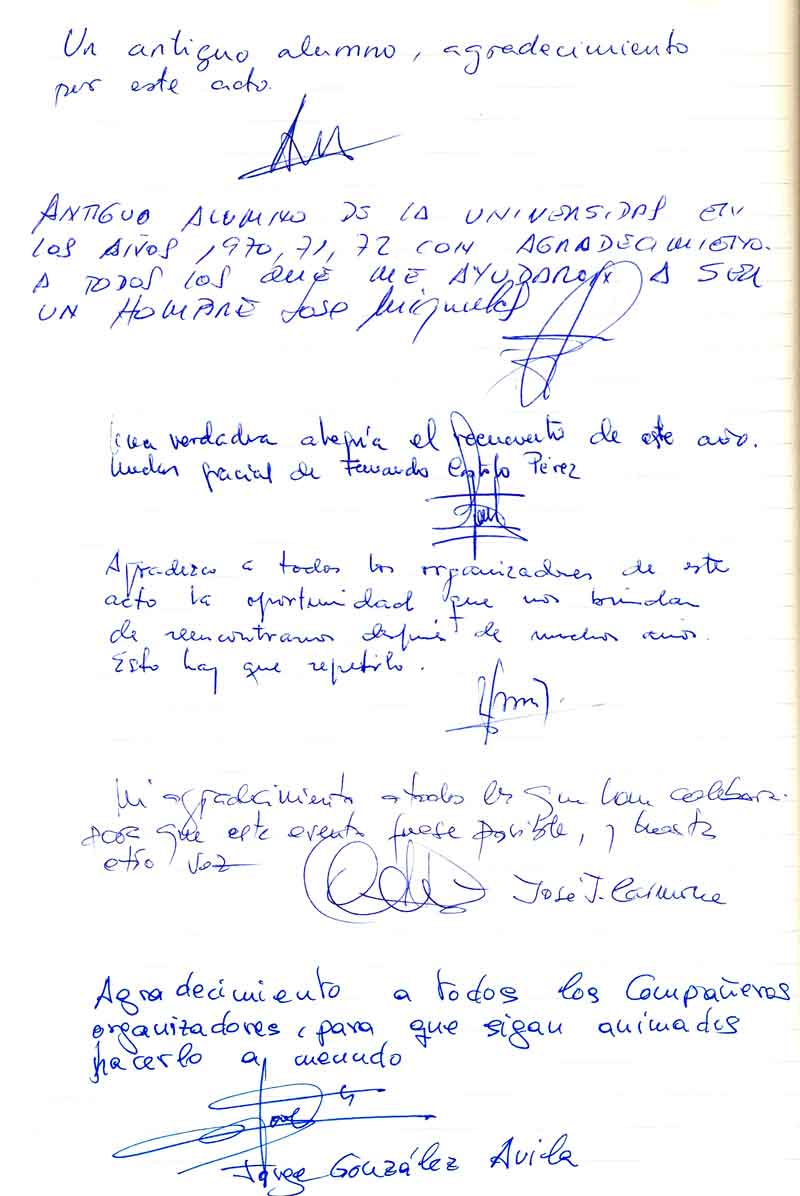 Un antiguo alumno, agradecimiento
por este acto.
ANTIGUO ALUMNO DE LA UNIVERSIDAD EN
LOS AÑOS 1970, 71, 72 CON AGRADECIMIETO.
A TODOS LOS QUE ME AYUDARON A SER
UN HOMBRE Jose
Una verdadra alegría el reencuento de este año.
Muchas gracias de Fernando Pérez
Agradezco a todos los organizadores de este
acto la oportunidad que nos brindan
de reencontrarnos después de muchos años.
Esto hay que repetirlo.
Mi agradecimiento a todos los que han colabora-
para que este evento fuese posible, y hasta
otro vez
José J. Carmona
Agradecimiento a todos los Compañeros
organizadores, para que sigan animados
hacerlo a menudo
Jorge González Avila